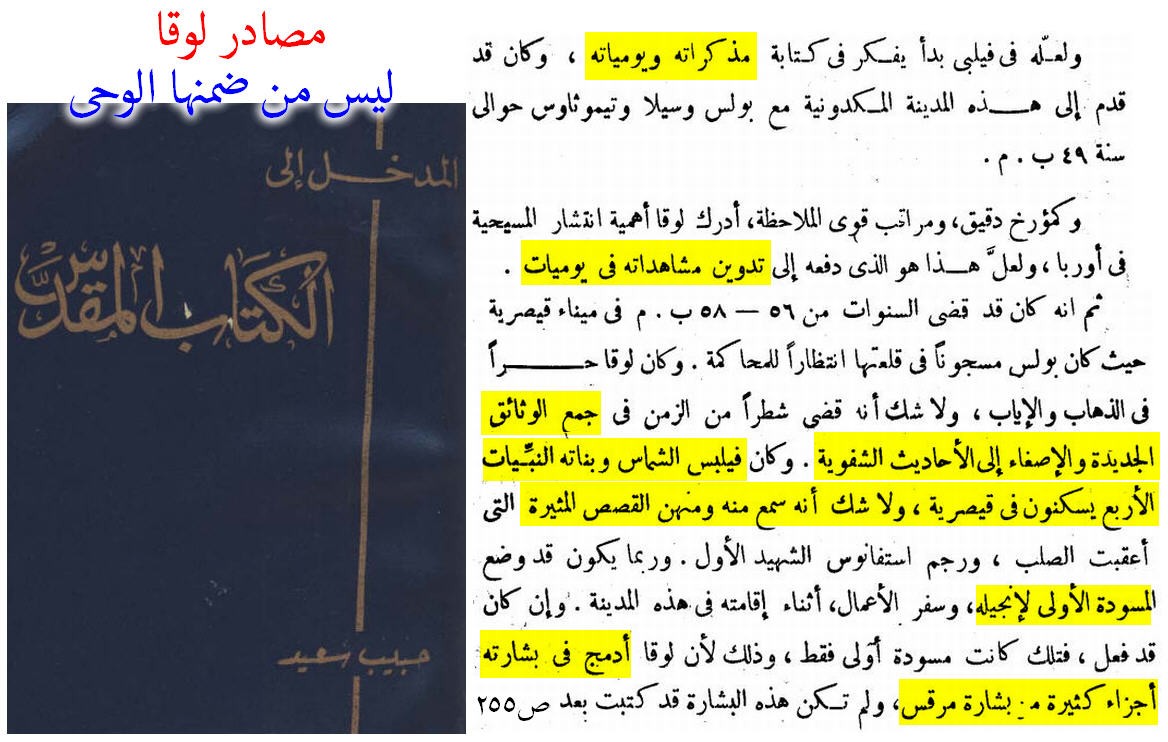 مصادر لوقا
ليس من ضمنها الوحى
المدخل إلى
الكتاب المقدس
حبيب سعيد
ولعلّه فى فيلبى بدأ يفكر فى كتابة مذكراته ويومياته ، وكان قد
قدم إلى هذه المدينة المكدونية مع بولس وسيلا وتيموثاوس حوالى
سنة ٤٩ ب . م .
وكمؤرخ دقيق، ومراقب قوى الملاحظة، أدرك لوقا أهمية انتشار المسيحية
فى أوربا ، ولعلَّ هذا هو الذى دفعه إلى تدوين مشاهداته فى يوميات .
ثم انه كان قد قضى السنوات من ٥٦ — ٥٨ ب . م فى ميناء قيصرية
حيث كان بولس مسجوناً فى قلعتها انتظاراً للمحاكمة . وكان لوقا حراً
فى الذهاب والإياب ، ولا شك أنه قضى شطراً من الزمن فى جمع الوثائق
الجديدة والإصغاء إلى الأحاديث الشفوية . وكان فيلبس الشماس وبناته النبِّيات
الأربع يسكنون فى قيصرية ، ولا شك أنه سمع منه ومنهن القصص المثيرة التى
أعقبت الصلب ، ورجم استفانوس الشهيد الأول . وربما يكون قد وضع
المسودة الأولى لإنجيله، وسفر الأعمال، أثناء إقامته فى هذه المدينة . وإن كان
قد فعل ، فتلك كانت مسودة أوّلى فقط ، وذلك لأن لوقا أدمج فى بشارته
أجزاء كثيرة من بشارة مرقس، ولم تكن هذه البشارة قد كتبت بعد ص٢٥٥